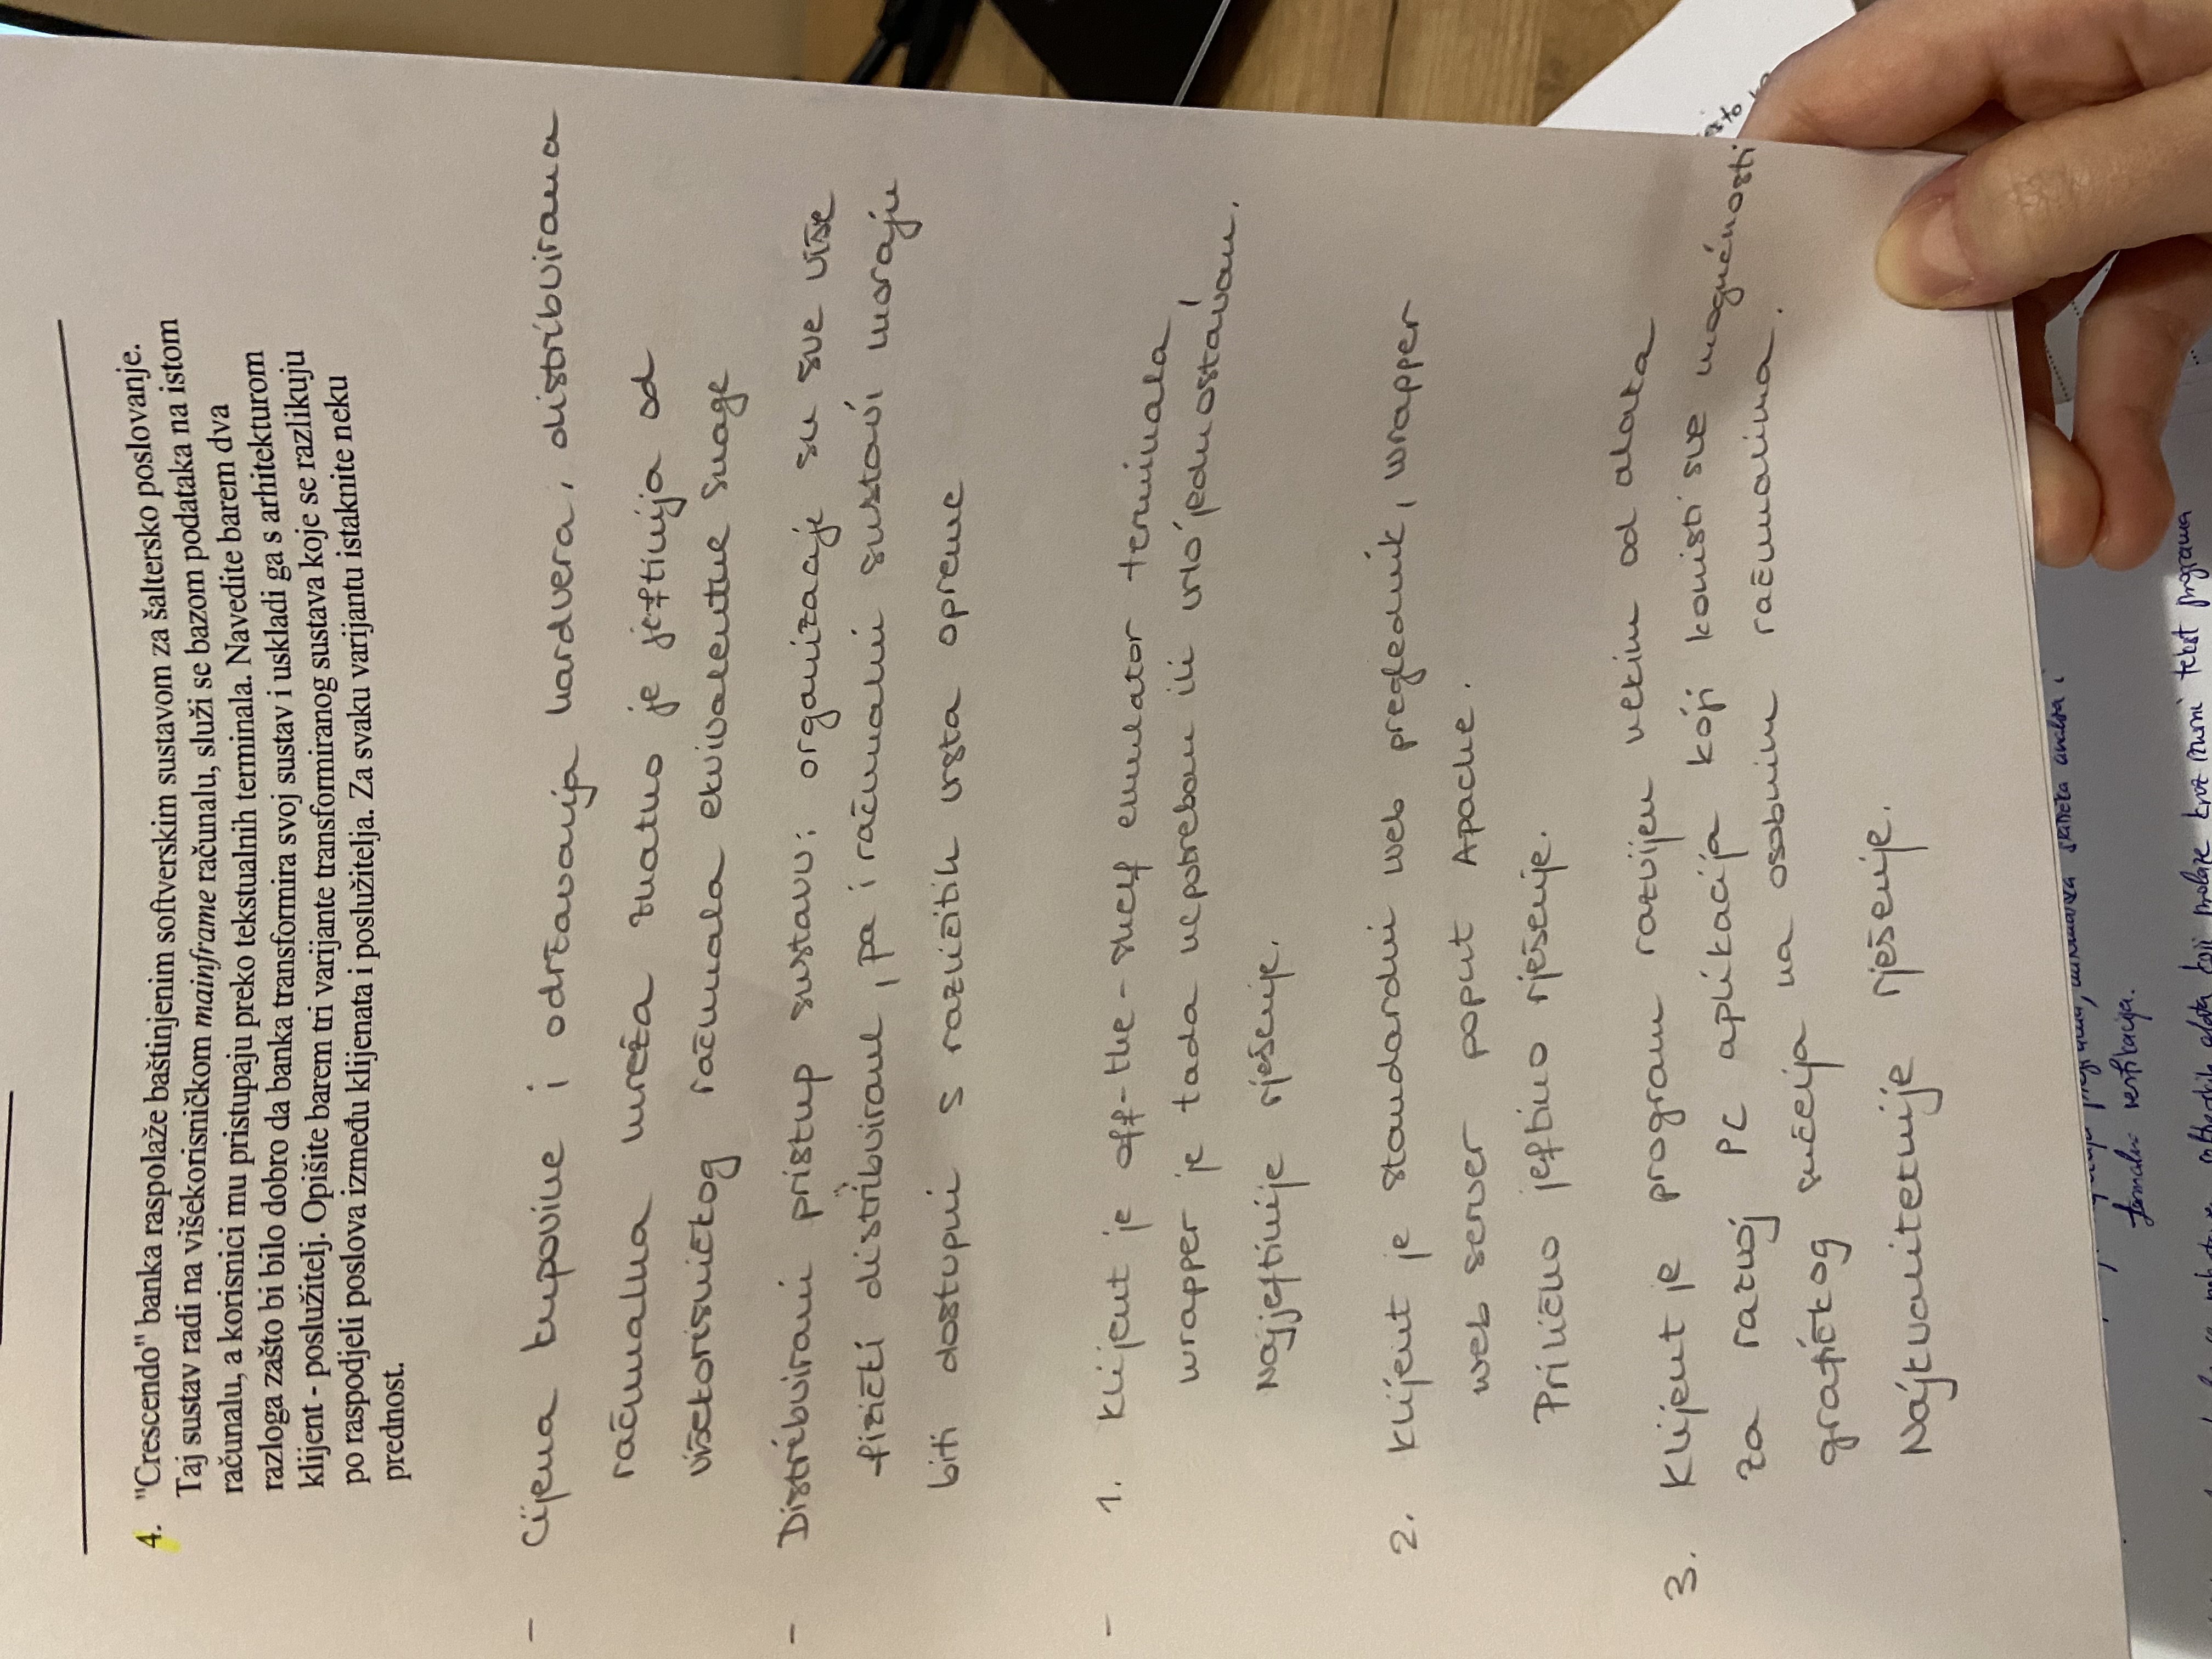 4. "Crescendo" banka raspolaže baštinjenim softverskim sustavom za šaltersko poslovanje.
Taj sustav radi na višekorisničkom mainframe računalu, služi se bazom podataka na istom
računalu, a korisnici mu pristupaju preko tekstualnih terminala. Navedite barem dva
razloga zašto bi bilo dobro da banka transformira svoj sustav i uskladi ga s arhitekturom
klijent - poslužitelj. Opišite barem tri varijante transformiranog sustava koje se razlikuju
po raspodjeli poslova između klijenata i poslužitelja. Za svaku varijantu istaknite neku
prednost.
- Cijena kupovine i održavanja hardvera, distribuirana
računalna mreža znatno je jeftinija od
višekorisničkog računala ekvivalentne snage
- Distribuirani pristup sustavu: organizacije su sve više
fizički distribuirane, pa i računalni sustavi moraju
biti dostupni s različitih vrsta opreme
- 1. Klijent je off-the-shelf emulator terminala,
wrapper je tada nepotreban ili vrlo jednostavan.
Najjeftinije rješenje.
2. Klijent je standardni web preglednik, wrapper
web server poput Apache.
Prilično jeftino rješenje.
3. Klijent je program razvijen nekim od alata
za razvoj PC aplikacija koji koristi sve mogućnosti
grafičkog sučelja na osobnim računalima.
Najkvalitetnije rješenje.
programa, statička analiza i
formalna verifikacija.
softverskih alata koji prolaze kroz izvorni tekst programa